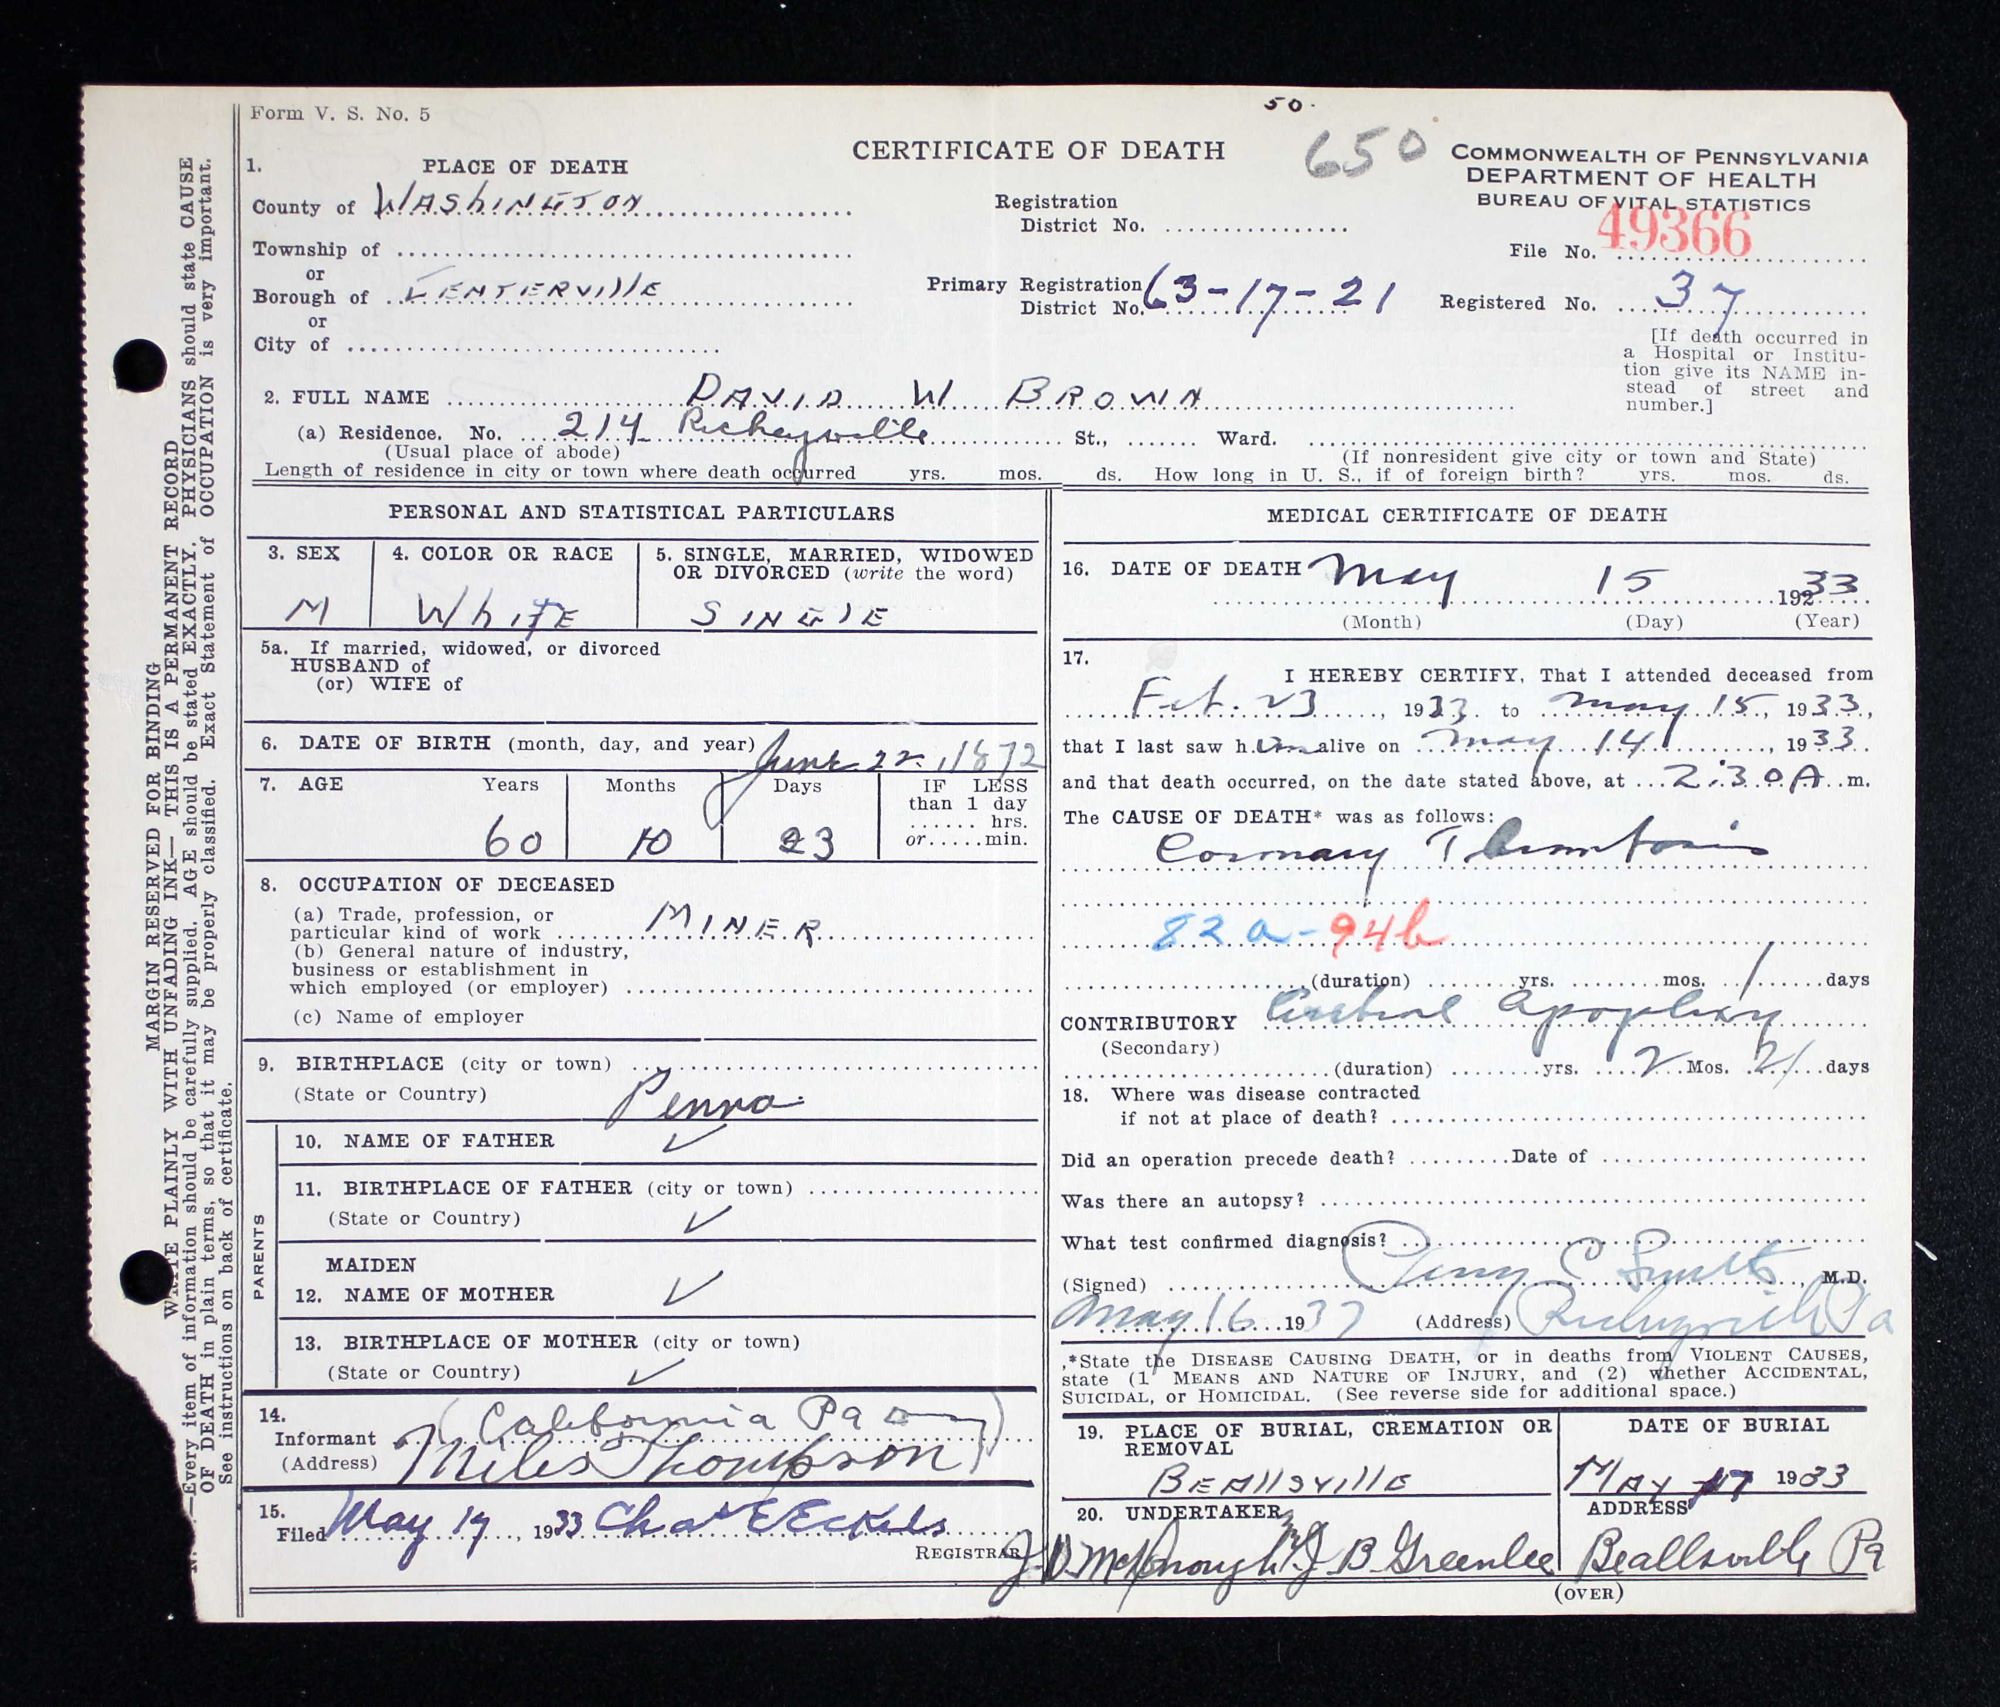 Form V. S. No. 5
50.
650
CERTIFICATE OF DEATH
COMMONWEALTH OF PENNSYLVANIA
DEPARTMENT OF HEALTH
BUREAU OF VITAL STATISTICS
File No. 49366
Registered No. 37
[If death occurred in
a Hospital or Institu-
tion give its NAME in-
stead of street and
number.]
1. PLACE OF DEATH
County of WASHINGTON
Township of
or
Borough of CENTERVILLE
or
City of
Registration
District No.
Primary Registration
District No. 63-17-21
2. FULL NAME DAVID W BROWN
(a) Residence. No. 214 Richeyville St., Ward.
(Usual place of abode) (If nonresident give city or town and State)
Length of residence in city or town where death occurred yrs. mos. ds. How long in U. S., if of foreign birth? yrs. mos. ds.
PERSONAL AND STATISTICAL PARTICULARS
3. SEX
M
4. COLOR OR RACE
WHITE
5. SINGLE, MARRIED, WIDOWED
OR DIVORCED (write the word)
SINGLE
5a. If married, widowed, or divorced
HUSBAND of
(or) WIFE of
6. DATE OF BIRTH (month, day, and year) June 22, 1872
7. AGE Years Months Days IF LESS
than 1 day
hrs.
or min.
60 10 23
8. OCCUPATION OF DECEASED
(a) Trade, profession, or
particular kind of work MINER
(b) General nature of industry,
business or establishment in
which employed (or employer)
(c) Name of employer
9. BIRTHPLACE (city or town)
(State or Country) Penna.
PARENTS
10. NAME OF FATHER ✓
11. BIRTHPLACE OF FATHER (city or town)
(State or Country) ✓
MAIDEN
12. NAME OF MOTHER ✓
13. BIRTHPLACE OF MOTHER (city or town)
(State or Country) ✓
14. (California Pa
Informant Miles Thompson
(Address)
15.
Filed May 17, 1933 Chas E Eckels
REGISTRAR
MEDICAL CERTIFICATE OF DEATH
16. DATE OF DEATH May 15 19233
(Month) (Day) (Year)
17.
I HEREBY CERTIFY, That I attended deceased from
Feb. 23, 1933. to May 15, 1933,
that I last saw him alive on May 14, 1933.
and that death occurred, on the date stated above, at 2:30 A. m.
The CAUSE OF DEATH* was as follows:
Coronary Thrombosis
82a-94b
(duration) yrs. mos. 1 days
CONTRIBUTORY Cerebral Apoplexy
(Secondary)
(duration) yrs. 2 Mos. 21 days
18. Where was disease contracted
if not at place of death?
Did an operation precede death? Date of
Was there an autopsy?
What test confirmed diagnosis?
(Signed) Perry C Smith, M.D.
May 16 1933 (Address) Richeyville Pa
*State the DISEASE CAUSING DEATH, or in deaths from VIOLENT CAUSES,
state (1 MEANS AND NATURE OF INJURY, and (2) whether ACCIDENTAL,
SUICIDAL, or HOMICIDAL. (See reverse side for additional space.)
19. PLACE OF BURIAL, CREMATION OR
REMOVAL
BEALLSVILLE
DATE OF BURIAL
MAY 17 1933
20. UNDERTAKER
J. D. McDonough J B Greenlee
ADDRESS
Beallsville Pa
(OVER)
MARGIN RESERVED FOR BINDING
WRITE PLAINLY WITH UNFADING INK— THIS IS A PERMANENT RECORD
N. —Every item of information should be carefully supplied. AGE should be stated EXACTLY. PHYSICIANS should state CAUSE
OF DEATH in plain terms, so that it may be properly classified. Exact Statement of OCCUPATION is very important.
See instructions on back of certificate.